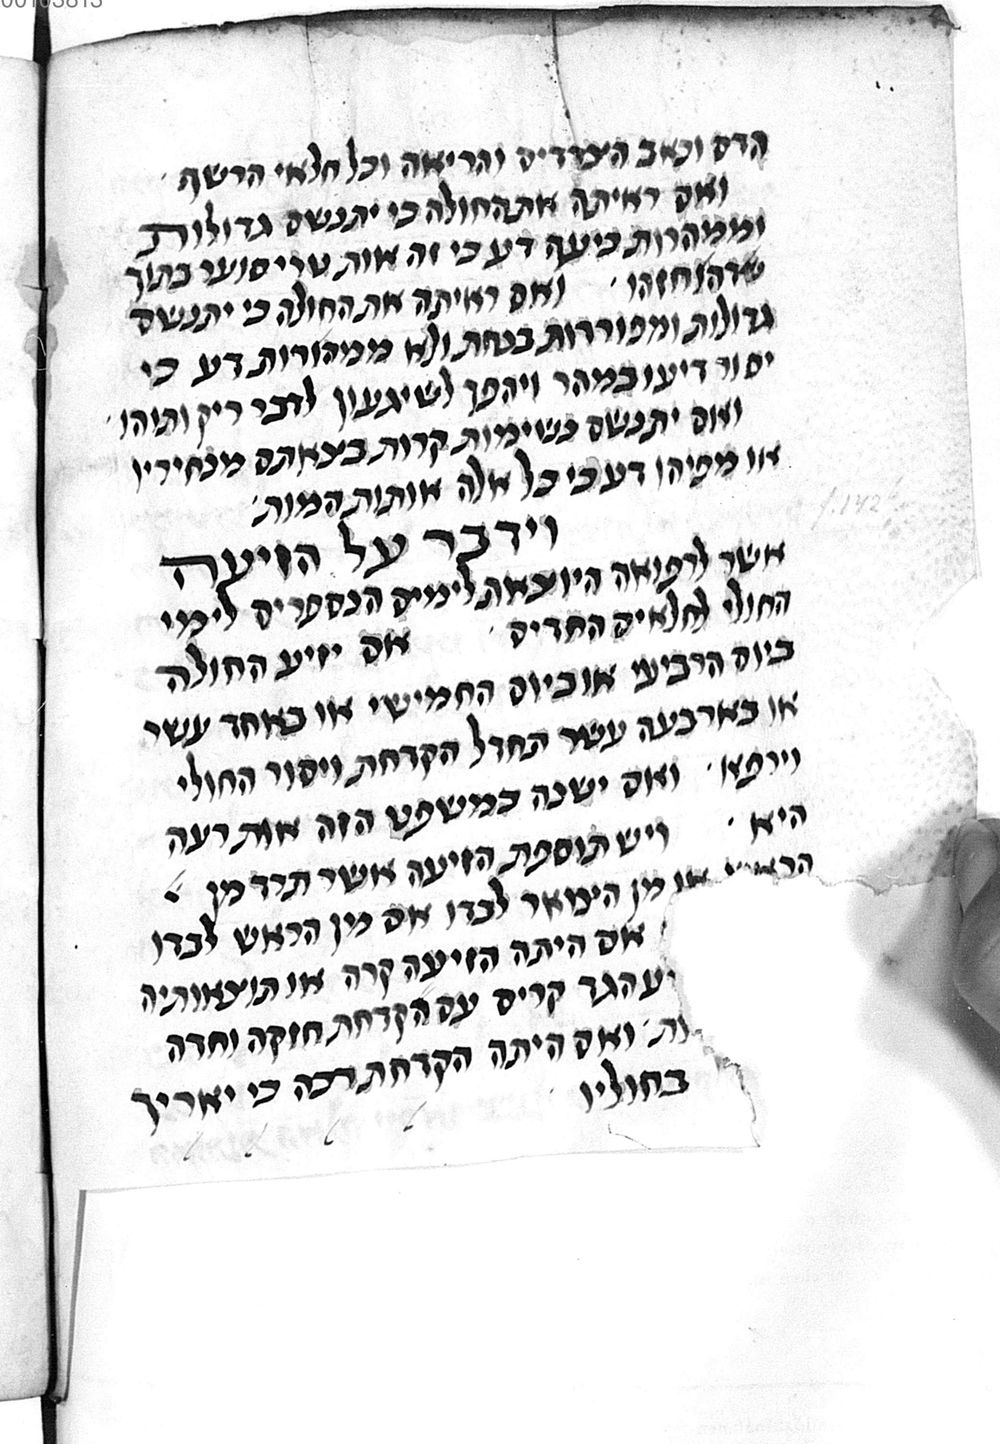 הדם וכאב הצדדים והריאה וכל חלאי הרשף
ואם ראיתה את החולה כי יתנשם גדולות
וממהרות דע כי זה אות טרי סוער בתוך
ואם ראיתה את החולה כי יתנשם
גדולות ומפוררות בנחת ולא ממהורות דע כי
יסור דיעו במהר ויהפך לשיגעון לדבר ריק ותוהו
ואם יתנשם נשימות קרות בצאתם מנחיריו
או מפיהו דע כי כל אלה אותות המות
וידבר על הזיעה
אשר לרפואה היוצאת לימים הנספרים לימי
החולי לחלאים החדים אם יזיע החולה
ביום הרביעי או ביום החמישי או באחד עשר
או בארבעה עשר תחדל הקדחת ויסור החולי
וירפא ואם ישנה במשפט הזה אות רעה
היא ויש תוספת הזיעה אשר תרד מן
הראש או מן הצואר לבדו אם מין הראש לבדו
אם היתה הזיעה קרה או תוצאותיה
קרים עם הקדחת חזקה וחדה
ואם היתה הקדחת רכה כי יאריך
בחוליו
f.142
00103813